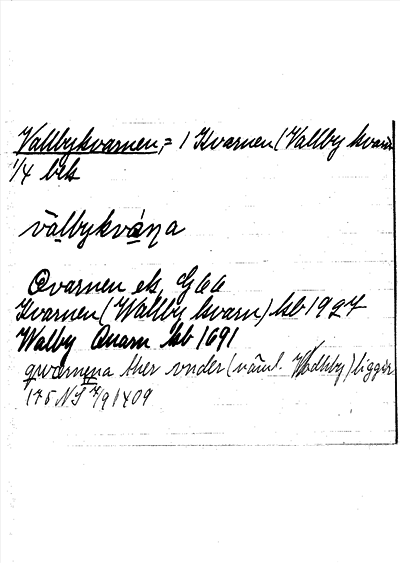 Vallbykvarnen, = 1 Kvarnen (Vallby kvarn
1/4 bek
välbykvána
Qvarnen ek. G66
Kvarnen (Wallby kvarn) kb 1927
Walby Quarn kb 1691
qwærnena ther vnder (näml. Wadhby) ligger
175 NS 7/9 1409